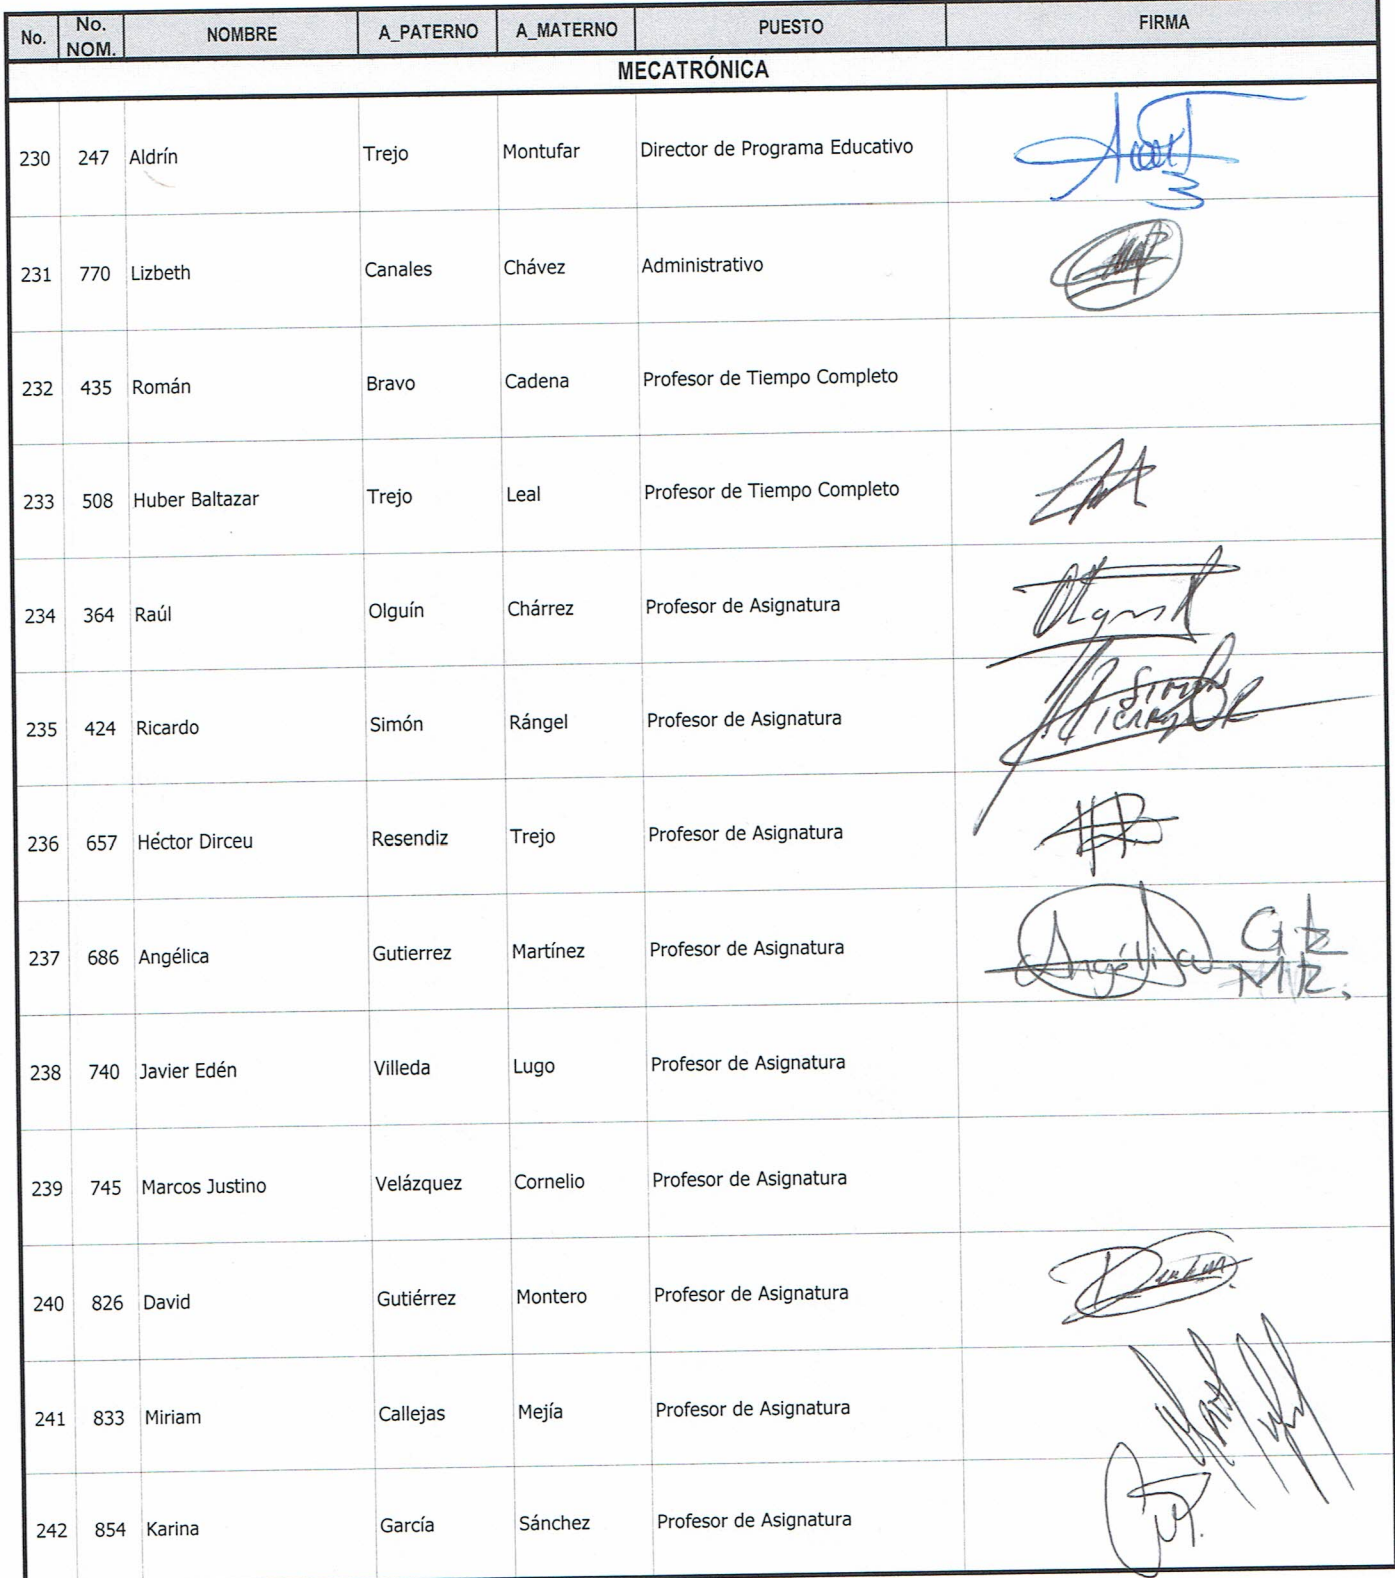 No. No. NOM. NOMBRE A_PATERNO A_MATERNO PUESTO FIRMA
MECATRÓNICA
230 247 Aldrín Trejo Montufar Director de Programa Educativo
231 770 Lizbeth Canales Chávez Administrativo
232 435 Román Bravo Cadena Profesor de Tiempo Completo
233 508 Huber Baltazar Trejo Leal Profesor de Tiempo Completo
234 364 Raúl Olguín Chárrez Profesor de Asignatura
235 424 Ricardo Simón Rángel Profesor de Asignatura
236 657 Héctor Dirceu Resendiz Trejo Profesor de Asignatura
237 686 Angélica Gutierrez Martínez Profesor de Asignatura Angélica
238 740 Javier Edén Villeda Lugo Profesor de Asignatura
239 745 Marcos Justino Velázquez Cornelio Profesor de Asignatura
240 826 David Gutiérrez Montero Profesor de Asignatura
241 833 Miriam Callejas Mejía Profesor de Asignatura
242 854 Karina García Sánchez Profesor de Asignatura